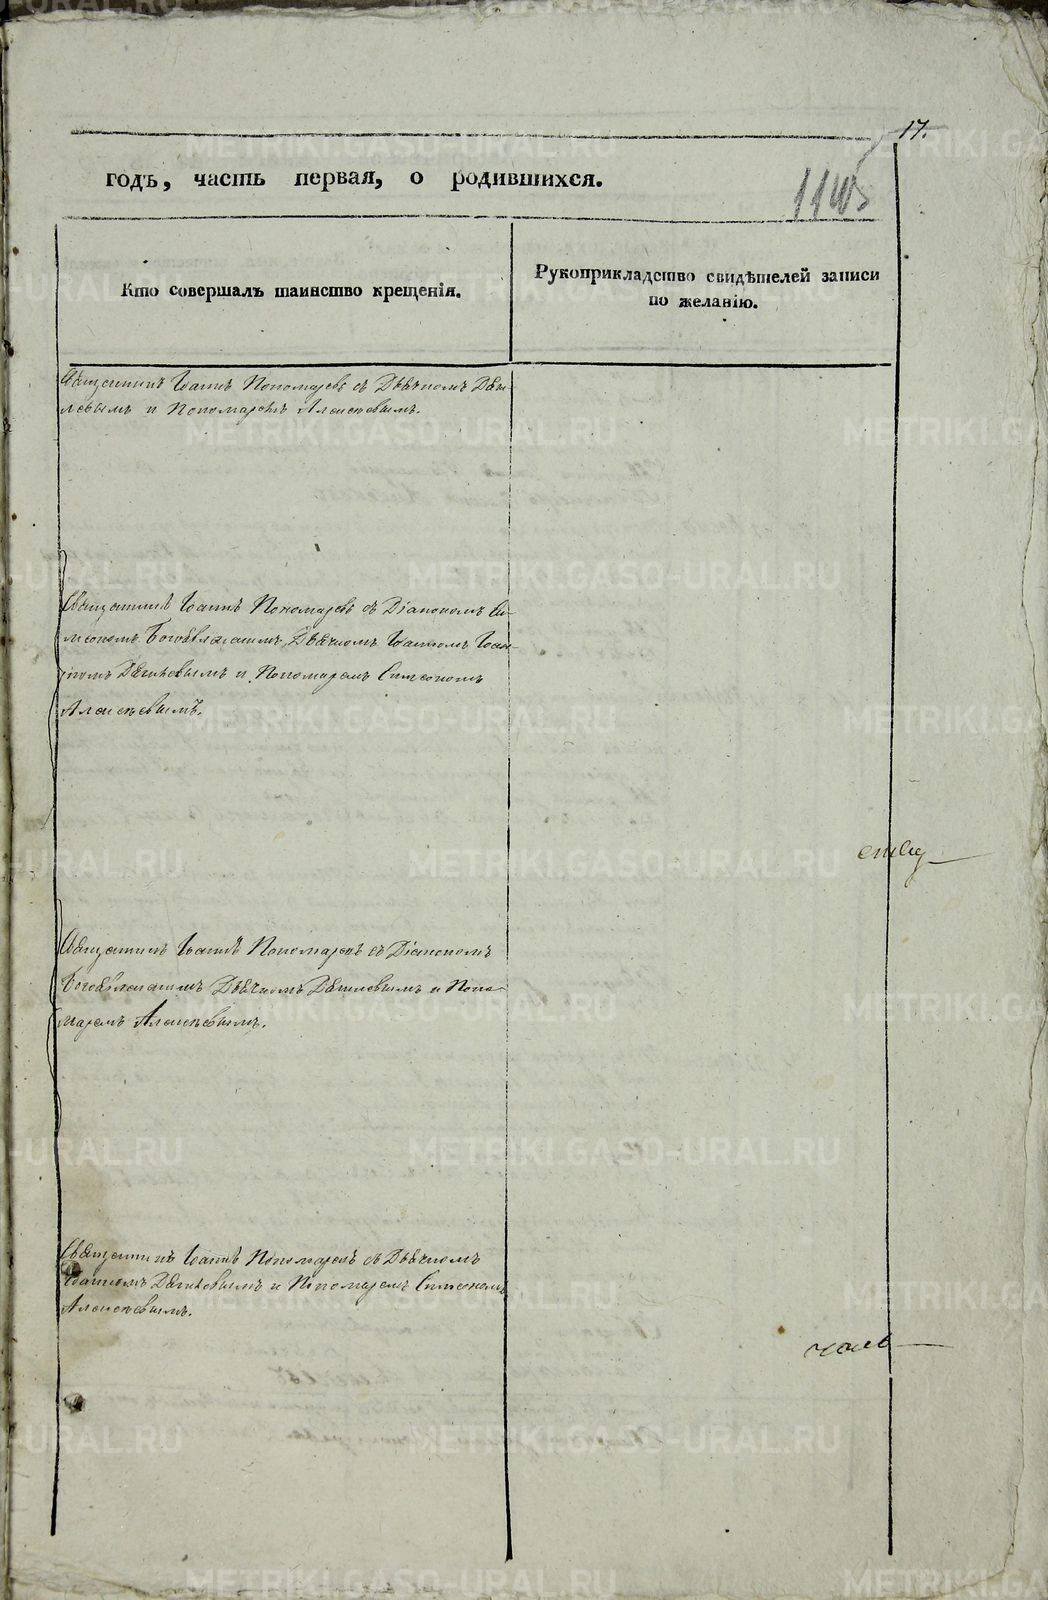 17.
годъ, часть первая, о родившихся.
Кто совершалъ таинство крещенія.
Рукоприкладство свидѣтелей записи
по желанію.
Священникъ Іоаннъ Пономаревъ съ Дьячкомъ
и Пономаремъ Алексѣевымъ.
Священникъ Іоаннъ Пономаревъ съ Діакономъ Си-
меономъ Богоявленскимъ, Дьячкомъ Іоанномъ
и Пономаремъ Симеономъ
Алексѣевымъ.
Священникъ Іоаннъ Пономаревъ съ Діакономъ
Богоявленскимъ Дьячкомъ и Поно-
маремъ Алексѣевымъ.
Священникъ Іоаннъ Пономаревъ съ Дьячкомъ
Іоанномъ и Пономаремъ Симеономъ
Алексѣевымъ.
METRIKI.GASO-URAL.RU